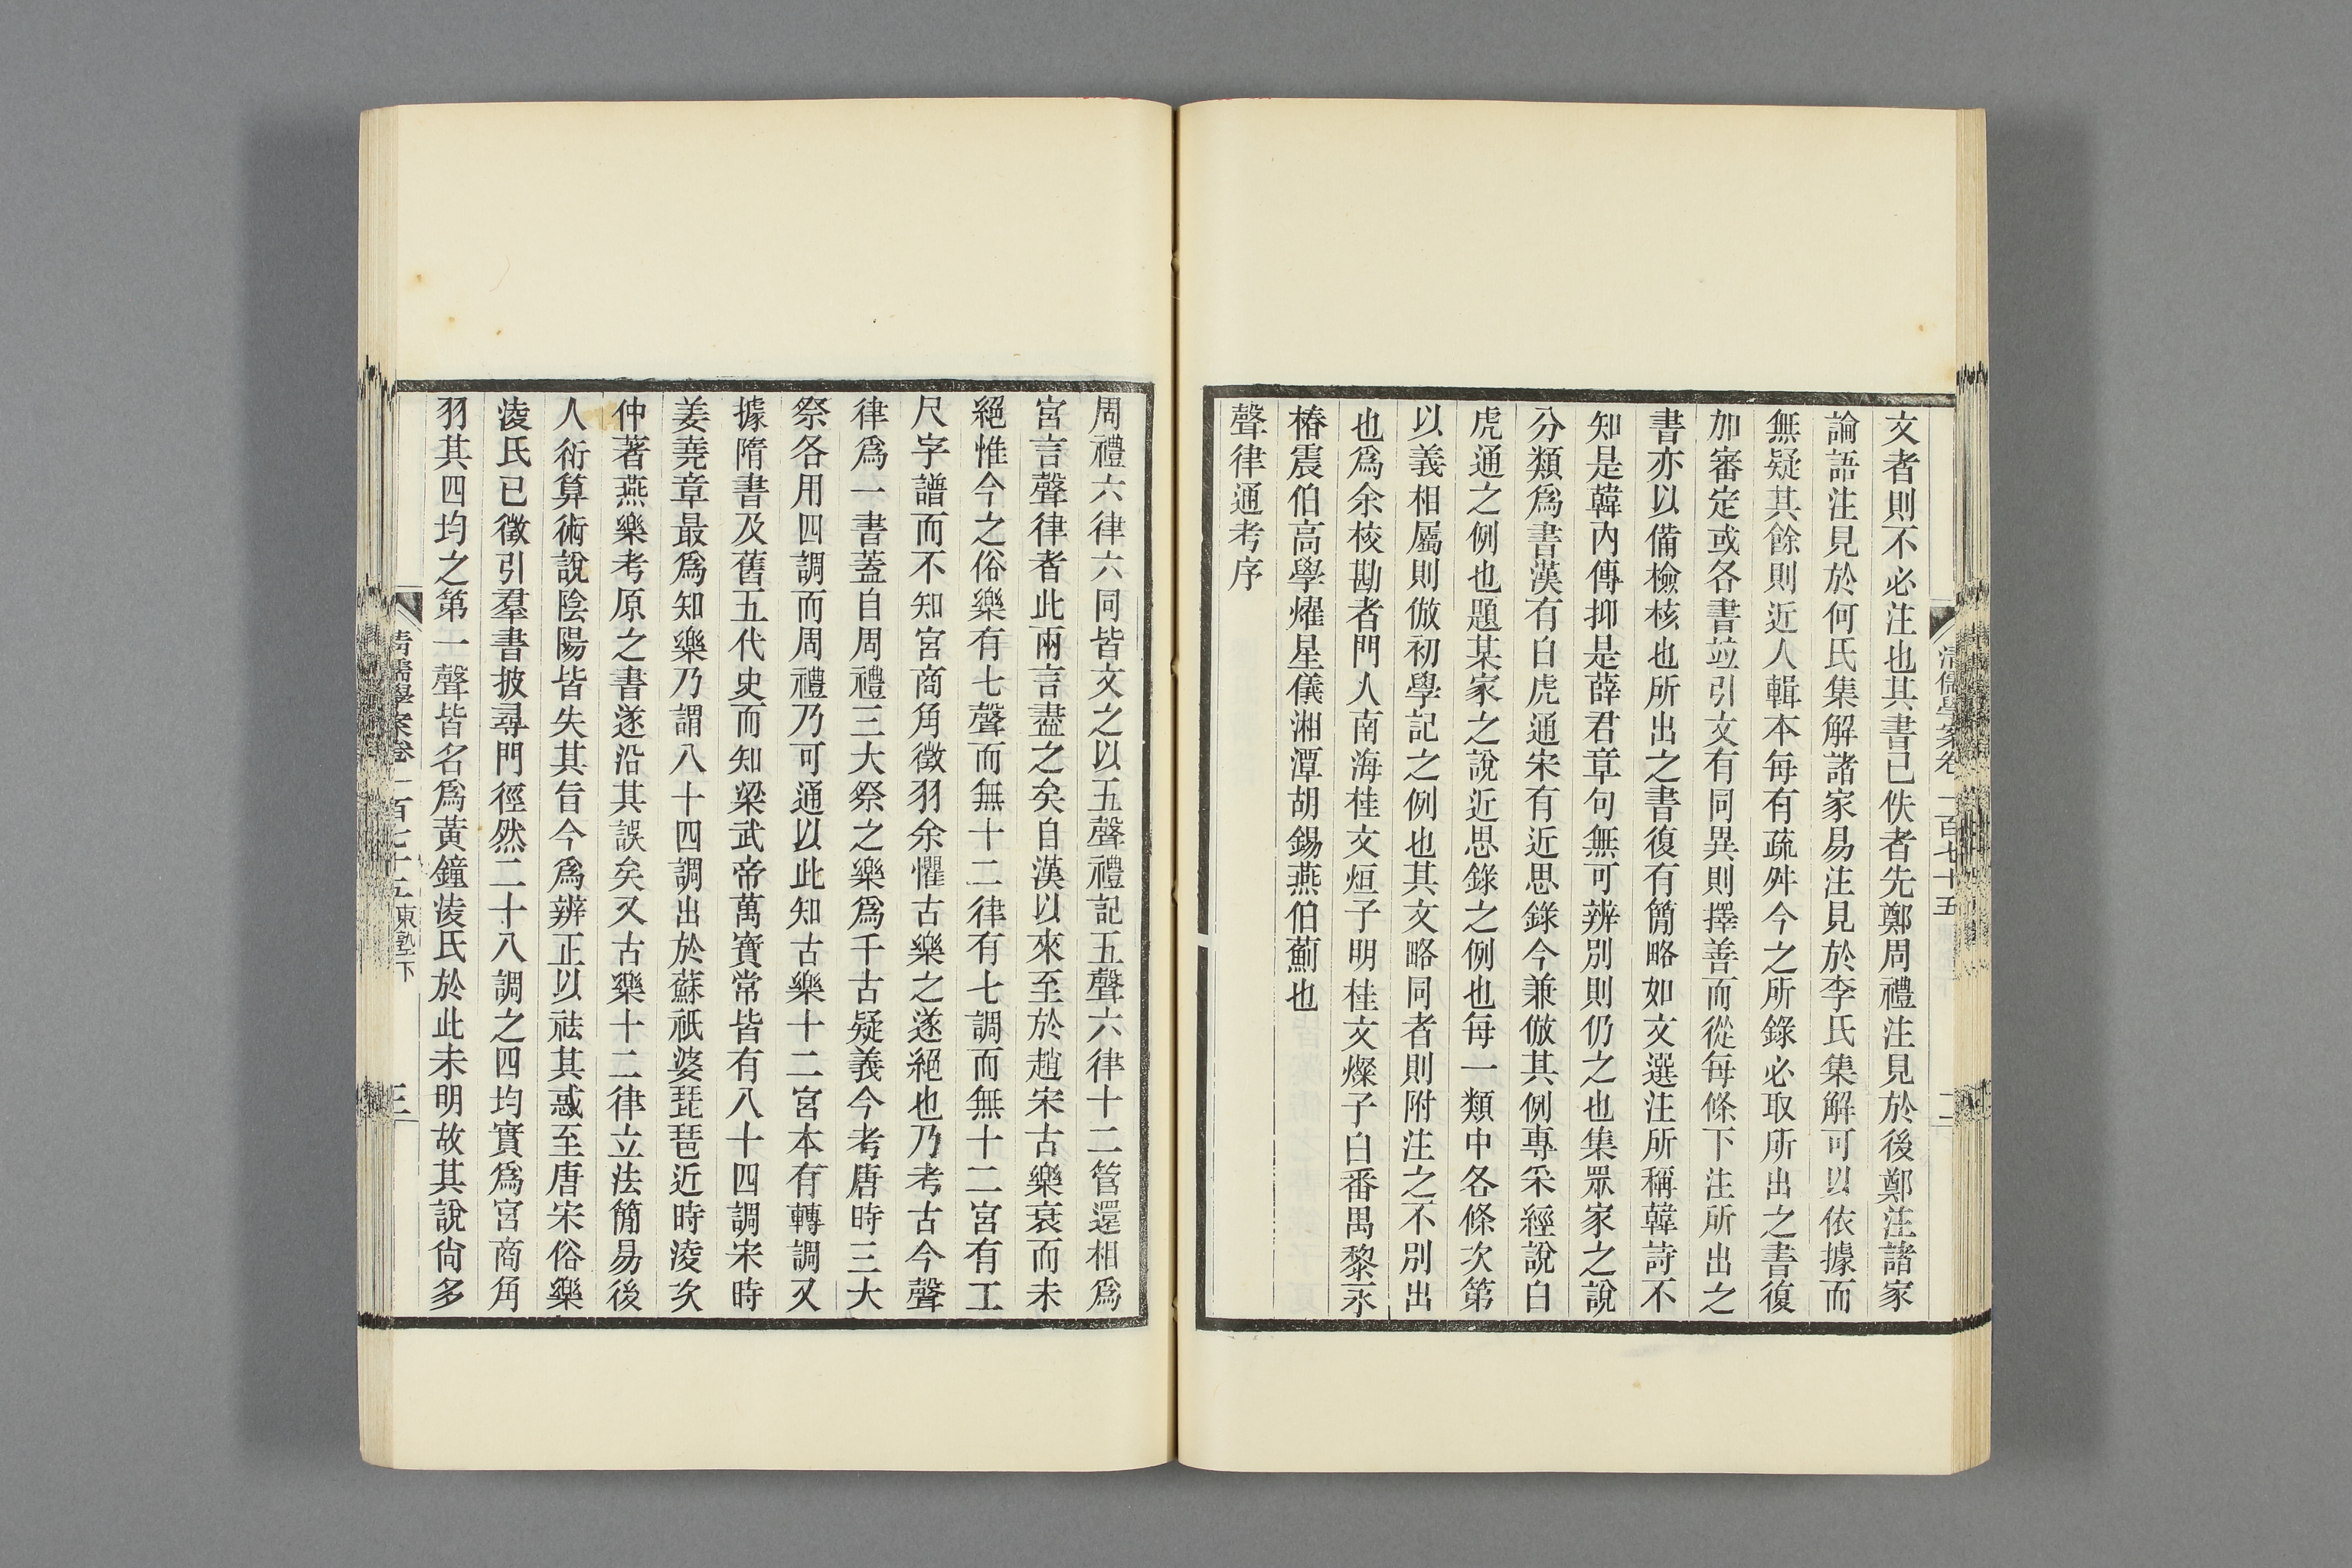 清儒學案卷一百七十五
二
文者則不必注也其書已佚者先鄭周禮注見於後鄭注諸家
論語注見於何氏集解諸家易注見於李氏集解可以依據而
無疑其餘則近人輯本每有疏舛今之所錄必取所出之書復
加審定或各書並引文有同異則擇善而從每條下注所出之
書亦以備檢核也所出之書復有簡略如文選注所稱韓詩不
知是韓內傳抑是薛君章句無可辨別則仍之也集眾家之說
分類爲書漢有白虎通宋有近思錄今兼倣其例專采經說白
虎通之例也題某家之說近思錄之例也每一類中各條次第
以義相屬則倣初學記之例也其文略同者則附注之不別出
也爲余校勘者門人南海桂文烜子明桂文燦子白番禺黎永
椿震伯高學燿星儀湘潭胡錫燕伯薊也
聲律通考序
周禮六律六同皆文之以五聲禮記五聲六律十二管還相爲
宮言聲律者此兩言盡之矣自漢以來至於趙宋古樂衰而未
絕惟今之俗樂有七聲而無十二律有七調而無十二宮有工
尺字譜而不知宮商角徵羽余懼古樂之遂絕也乃考古今聲
律爲一書蓋自周禮三大祭之樂爲千古疑義今考唐時三大
祭各用四調而周禮乃可通以此知古樂十二宮本有轉調又
據隋書及舊五代史而知梁武帝萬寶常皆有八十四調宋時
姜堯章最爲知樂乃謂八十四調出於蘇祇婆琵琶近時淩次
仲著燕樂考原之書遂沿其誤矣又古樂十二律立法簡易後
人衍算術說陰陽皆失其旨今爲辨正以祛其惑至唐宋俗樂
淩氏已徵引羣書披尋門徑然二十八調之四均實爲宮商角
羽其四均之第一聲皆名爲黃鐘淩氏於此未明故其說尙多
清儒學案卷一百七十五 東塾下
三